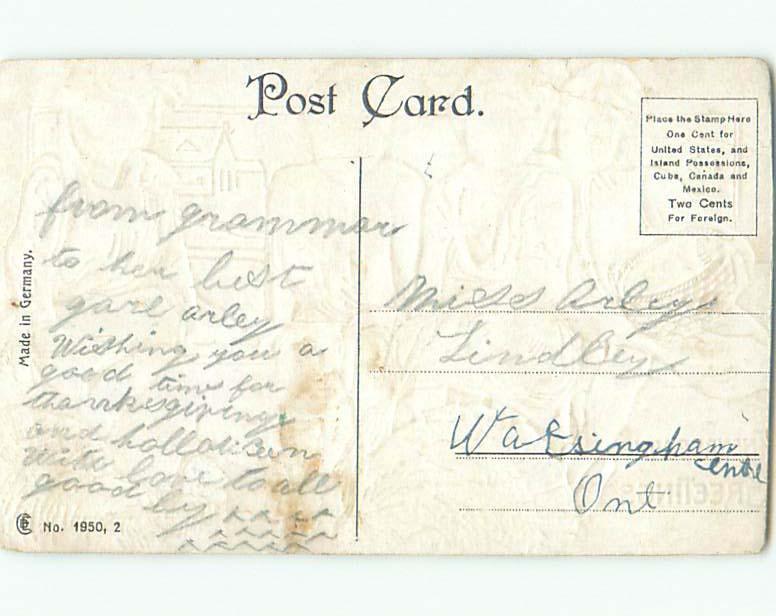 Post Card.
Place the Stamp Here
One Cent for
United States, and
Island Possessions,
Cuba, Canada and
Mexico.
Two Cents
For Foreign.
from grammar
to her best
garl arley
Wishing you a
good time for
thanksgiving
and holloween
with love to all
good by
Miss Arley
Lindley
Walsingham
Centre
Ont
Made in Germany.
No. 1950, 2